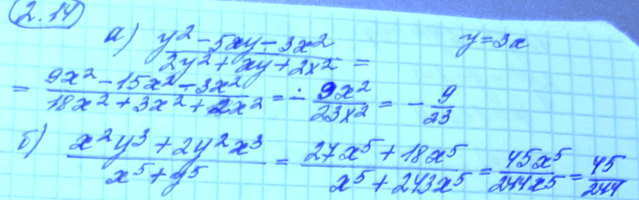 2.14
а) (y² - 5xy - 3x²)/(2y² + xy + 2x²) = y = 3x
= (9x² - 15x² - 3x²)/(18x² + 3x² + 2x²) = - 9x²/23x² = - 9/23
б) (x²y³ + 2y²x³)/(x⁵ + y⁵) = (27x⁵ + 18x⁵)/(x⁵ + 243x⁵) = 45x⁵/244x⁵ = 45/244